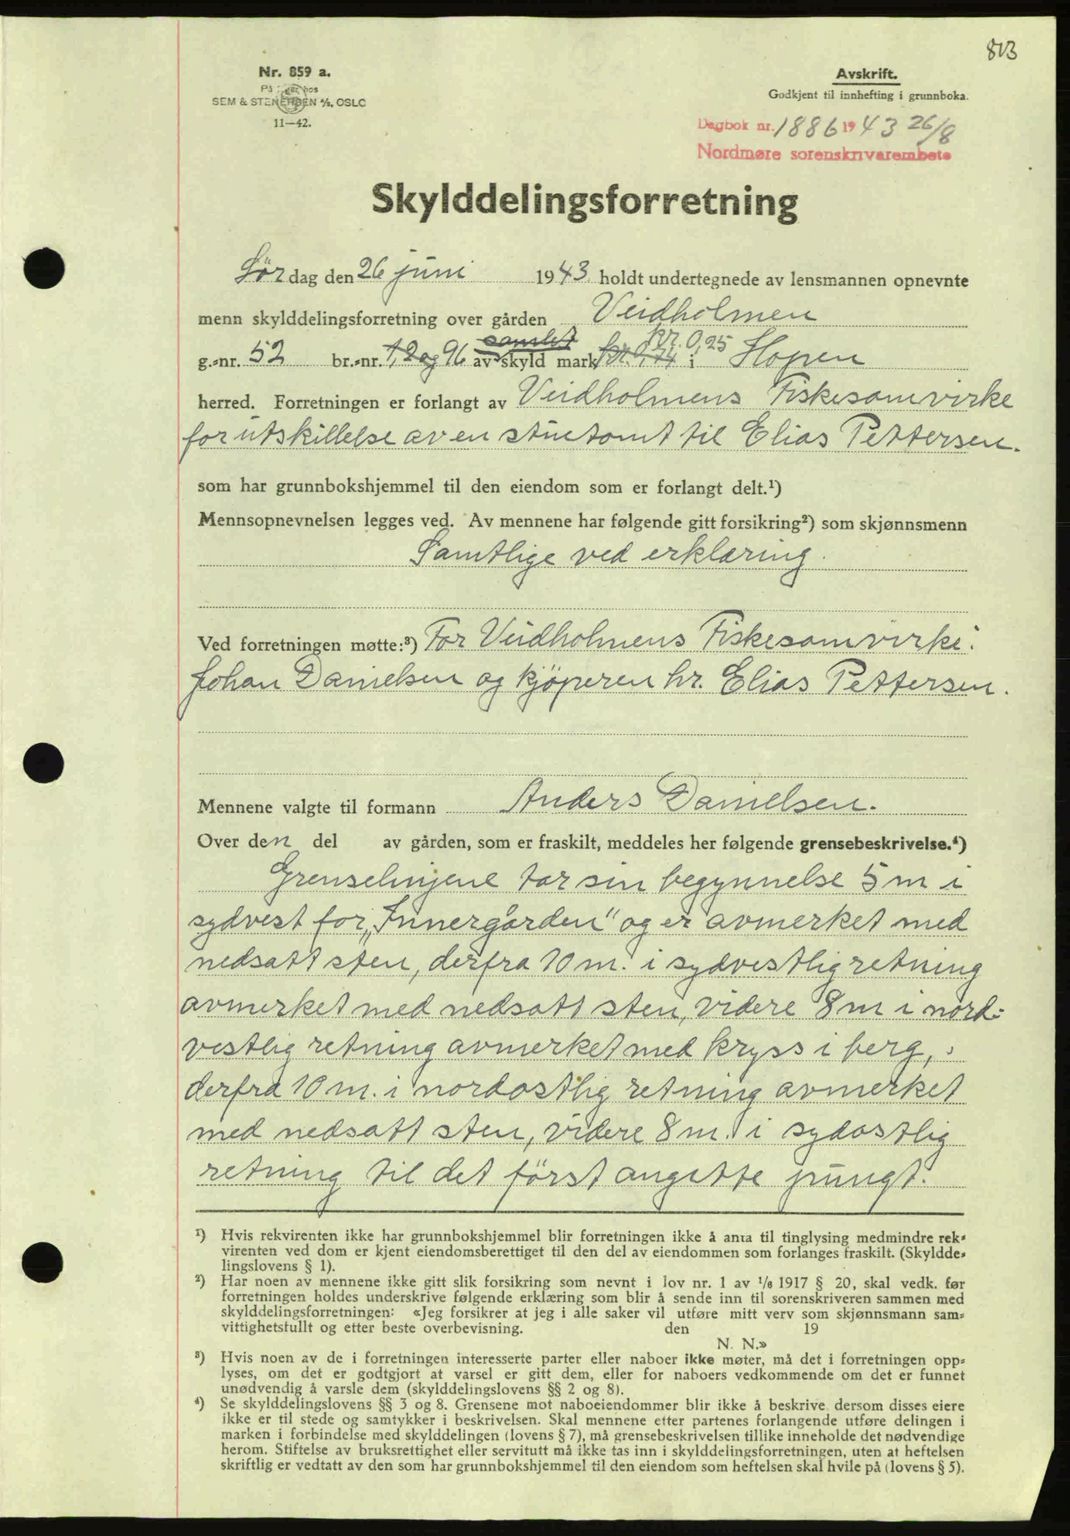 813
Nr. 859 a.
På lager hos
SEM & STENERSEN A/S, OSLO
11—42.
Avskrift.
Godkjent til innhefting i grunnboka.
Dagbok nr. 1886 1943 26/8
Nordmøre sorenskriverembete
Skylddelingsforretning
Lördag den 26 juni 1943 holdt undertegnede av lensmannen opnevnte
menn skylddelingsforretning over gården Veidholmen
samlet kr. 0,25
g.-nr. 52 br.-nr. 1,2 og 96 av skyld mark kr. 0,74 i Hopen
herred. Forretningen er forlangt av Veidholmens Fiskesamvirke
for utskillelse av en stuetomt til Elias Pettersen.
som har grunnbokshjemmel til den eiendom som er forlangt delt.¹)
Mennsopnevnelsen legges ved. Av mennene har følgende gitt forsikring²) som skjønnsmenn
Samtlige ved erklæring.
Ved forretningen møtte:³) For Veidholmens Fiskesamvirke:
Johan Danielsen og kjöperen hr. Elias Pettersen.
Mennene valgte til formann Anders Danielsen.
Over den del av gården, som er fraskilt, meddeles her følgende grensebeskrivelse.⁴)
Grenselinjene tar sin begynnelse 5 m i
sydvest for „Innergården" og er avmerket med
nedsatt sten, derfra 10 m. i sydvestlig retning
avmerket med nedsatt sten, videre 8 m i nord-
vestlig retning avmerket med kryss i berg,
derfra 10 m. i nordostlig retning avmerket
med nedsatt sten, videre 8 m. i sydostlig
retning til det först angitte pungt.
¹) Hvis rekvirenten ikke har grunnbokshjemmel blir forretningen ikke å anta til tinglysing medmindre rek-
virenten ved dom er kjent eiendomsberettiget til den del av eiendommen som forlanges fraskilt. (Skyldde-
lingslovens § 1).
²) Har noen av mennene ikke gitt slik forsikring som nevnt i lov nr. 1 av 1/6 1917 § 20, skal vedk. før
forretningen holdes underskrive følgende erklæring som blir å sende inn til sorenskriveren sammen med
skylddelingsforretningen: «Jeg forsikrer at jeg i alle saker vil utføre mitt verv som skjønnsmann sam-
vittighetsfullt og etter beste overbevisning. den 19
N. N.»
³) Hvis noen av de i forretningen interesserte parter eller naboer ikke møter, må det i forretningen opp-
lyses, om det er godtgjort at varsel er gitt dem, eller for naboers vedkommende om det er funnet
unødvendig å varsle dem (skylddelingslovens §§ 2 og 8).
⁴) Se skylddelingslovens §§ 3 og 8. Grensene mot naboeiendommer blir ikke å beskrive dersom disses eiere
ikke er til stede og samtykker i beskrivelsen. Skal mennene etter partenes forlangende utføre delingen i
marken i forbindelse med skylddelingen (lovens § 7), må grensebeskrivelsen tillike inneholde det nødvendige
herom. Stiftelse av bruksrettighet eller servitutt må ikke tas inn i skylddelingsforretningen, uten at heftelsen
skriftlig er vedtatt av den som har grunnbokshjemmel til den eiendom som heftelsen skal hvile på (lovens § 5).